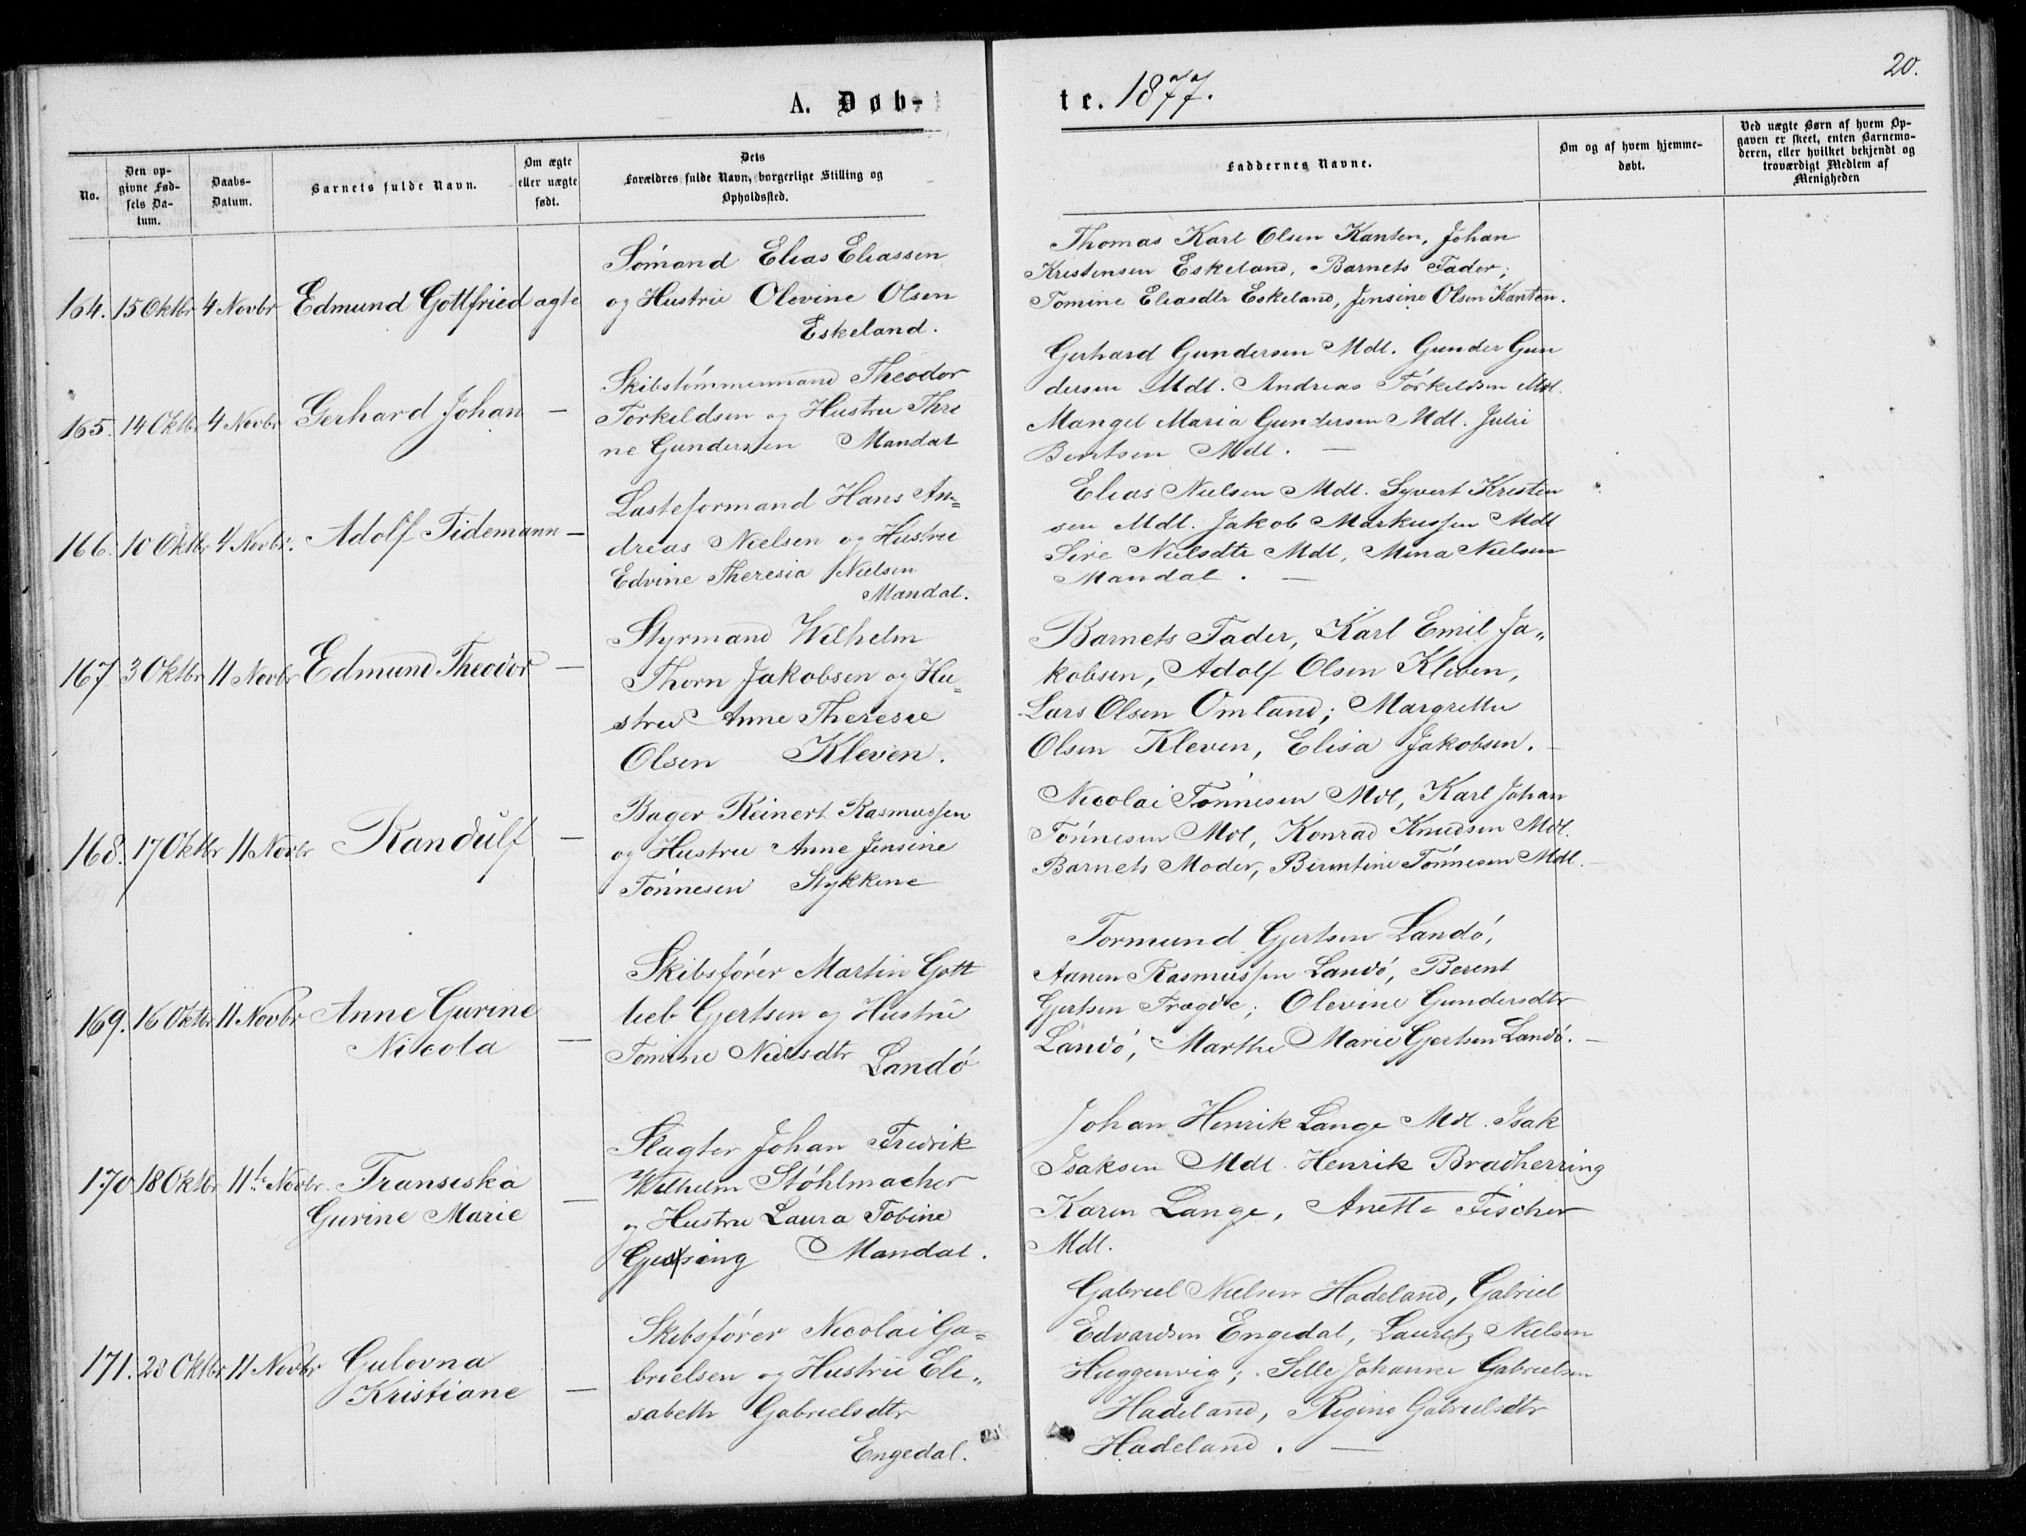 20.
A. Døb-
te. 1877.
No.
Den op-
givne Fød-
sels Da-
tum.
Daabs-
Datum.
Barnets fulde Navn.
Om ægte
eller uægte
født.
Dets
Forældres fulde Navn, borgerlige Stilling og
Opholdssted.
Faddernes Navne.
Om og af hvem hjemme-
døbt.
Ved uægte Børn af hvem Op-
gaven er skeet, enten Barnemo-
deren, eller hvilket bekjendt og
troværdigt Medlem af
Menigheden
164. 15 Oktbr 4 Novbr Edmund Gottfried ægte
Sømand Elias Eliassen
og Hustru Olevine Olsen
Eskeland.
Thomas Karl Olsen Kanten, Johan
Kristensen Eskeland, Barnets Fader;
Tomine Eliasdtr Eskeland, Jensine Olsen Kanten.
165. 14 Oktbr 4 Novbr Gerhard Johan —
Skibstømmermand Theodor
Torkildsen og Hustru Thri
ne Gundersen Mandal
Gerhard Gundersen Mdl. Gunder Gun
dersen Mdl. Andreas Torkeldsen Mdl.
Mangel Maria Gundersen Mdl. Julie
Bentsen Mdl. —
166. 10 Oktbr 4 Novbr. Adolf Tidemann —
Lasteformand Hans An=
dreas Nielsen og Hustru
Edvine Theresia Nielsen
Mandal.
Elias Nielsen Mdl. Syvert Kristen
sen Mdl. Jakob Markussen Mdl
Sire Nielsdtr Mdl, Mina Nielsen
Mandal. —
167. 3 Oktbr 11 Novbr Edmund Theodor —
Styrmand Wilhelm
Thorn Jakobsen og Hu=
stru Anne Therese
Olsen Kleven.
Barnets Fader, Karl Emil Ja„
kobsen, Adolf Olsen Kleven,
Lars Olsen Omland; Margrethe
Olsen Kleven, Elisa Jakobsen. —
168. 17 Oktbr 11 Novbr Randulf —
Bager Reinert Rasmussen
og Hustru Anne Jensine
Tønnesen Stykkene
Nicolai Tønnesen Mdl, Karl Johan
Tønnesen Mdl, Konrad Knudsen Mdl.
Barnets Moder, Berentine Tønnesen Mdl. —
169. 16 Oktbr 11 Novbr Anne Gurine
Nicola —
Skibsfører Martin Gott
lieb Gjertsen og Hustru
Tomine Nielsdtr Landø
Tormund Gjertsen Landø,
Aanen Rasmussen Landø, Berent
Gjertsen Tregde; Olevine Gundersdtr
Landø, Marthe Marie Gjertsen Landø. —
170. 18 Oktbr 11te Novbr. Fransiska
Gurine Marie —
Slagter Johan Fredrik
Wilhelm Støhlmacher
og Hustru Laura Tobine
Mandal.
Johan Henrik Lange Mdl. Isak
Isaksen Mdl. Henrik Bradherring
Karen Lange, Anette Fischer
Mdl.
171. 28 Oktbr 11 Novbr Gulovna
Kristiane —
Skibsfører Nicolai Ga=
brielsen og Hustru Eli„
sabeth Gabrielsdtr
Engedal.
Gabriel Nielsen Hadeland, Gabriel
Edvardsen Engedal, Lauretz Nielsen
Huggenvig; Sille Johanne Gabrielsen
Hadeland, Regine Gabrielsdtr
Hadeland. —